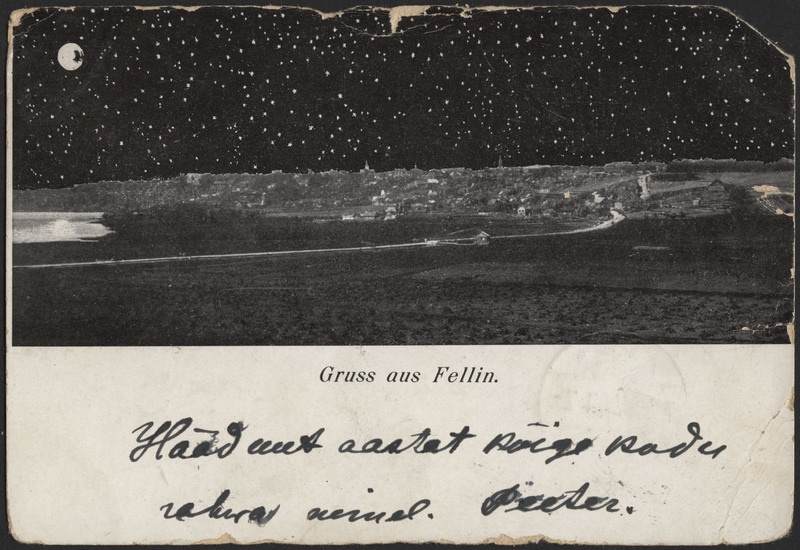 Gruss aus Fellin.
Hääd uut aastat kõige kodu
rahwa nimel. Peeter.